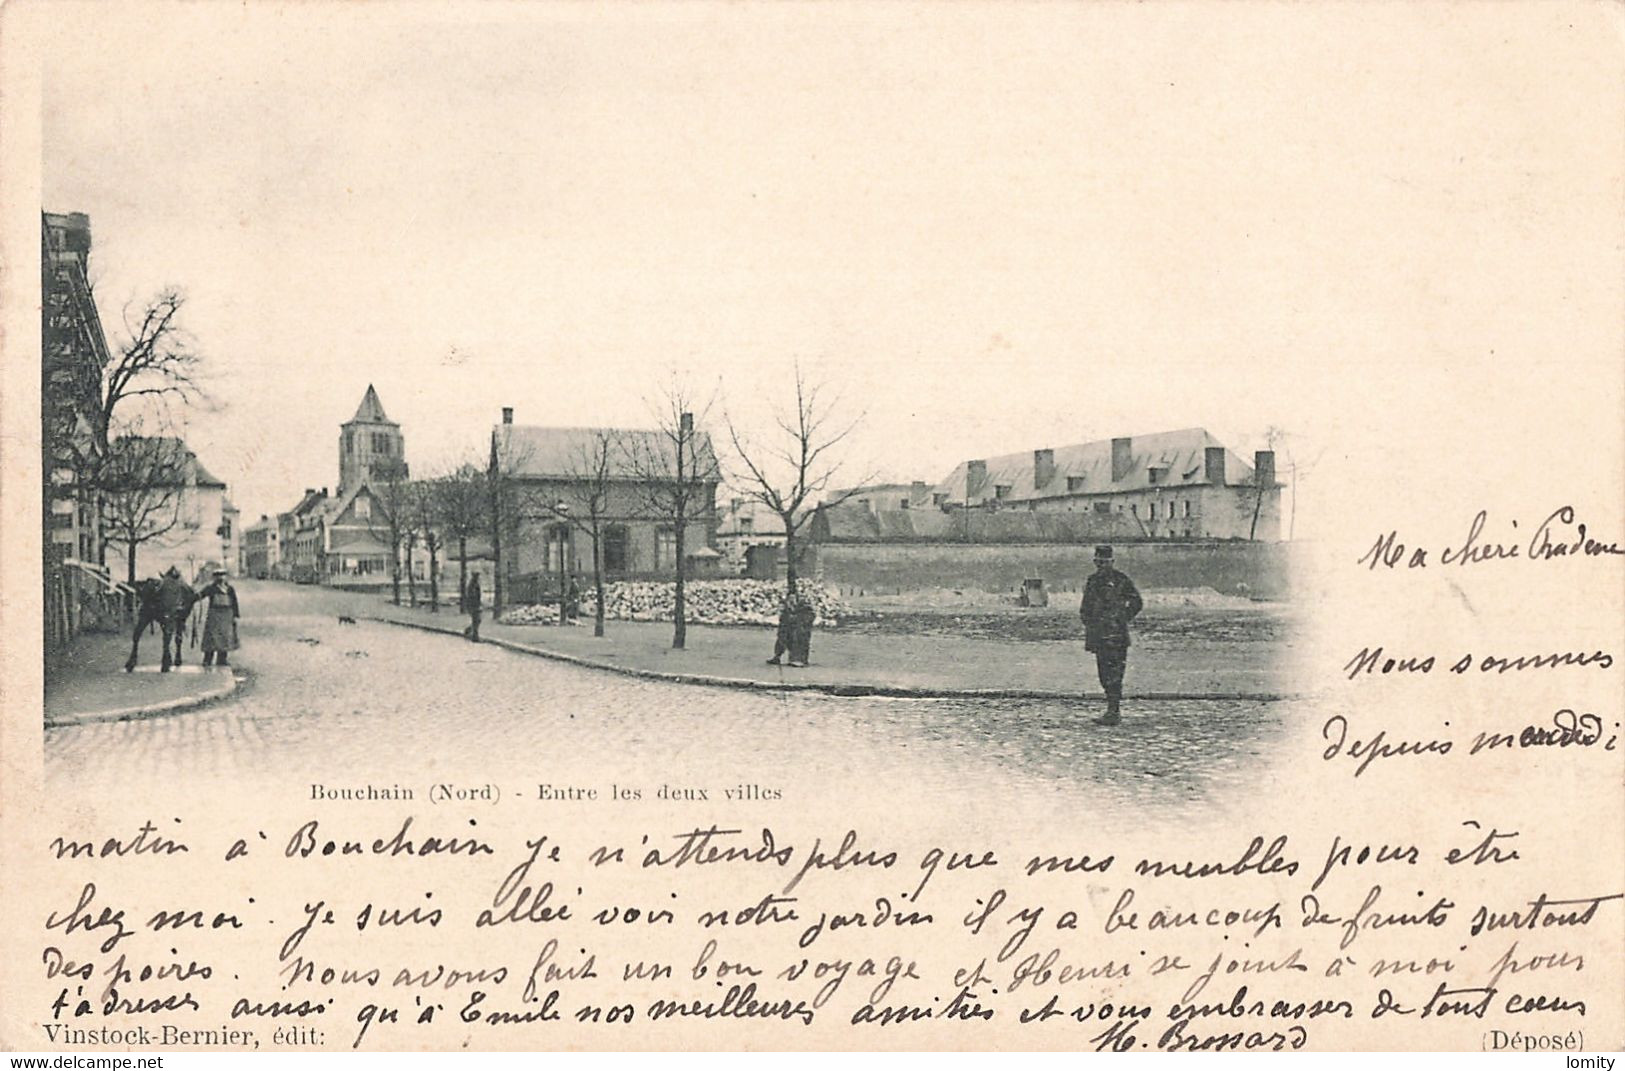 Ma chèrè
Nous sommes
depuis
Bouchain (Nord) - Entre les deux villes
matin à Bouchain Je n'attends plus que mes meubles pour être
chez moi. Je suis allée voir notre jardin il y a beaucoup de fruits surtout
des poires. Nous avons fait un bon voyage et Henri se joint à moi pour
t'adresser ainsi qu'à Emile nos meilleures amitiés et vous embrasser de tout coeur
M. Brossard
Vinstock-Bernier, édit:
(Déposé)
delcampe.net
lomity